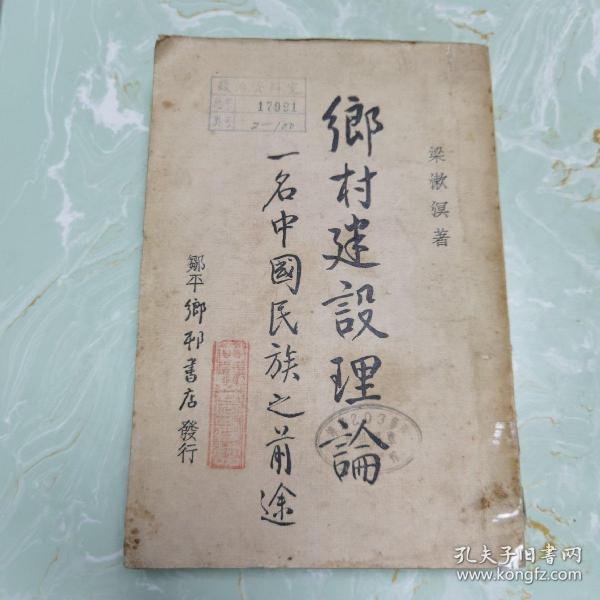 梁漱溟著
鄉村建設理論
一名中國民族之前途
鄒平鄉邨書店發行
17991
2-100
203
孔夫子旧书网
www.kongfz.com